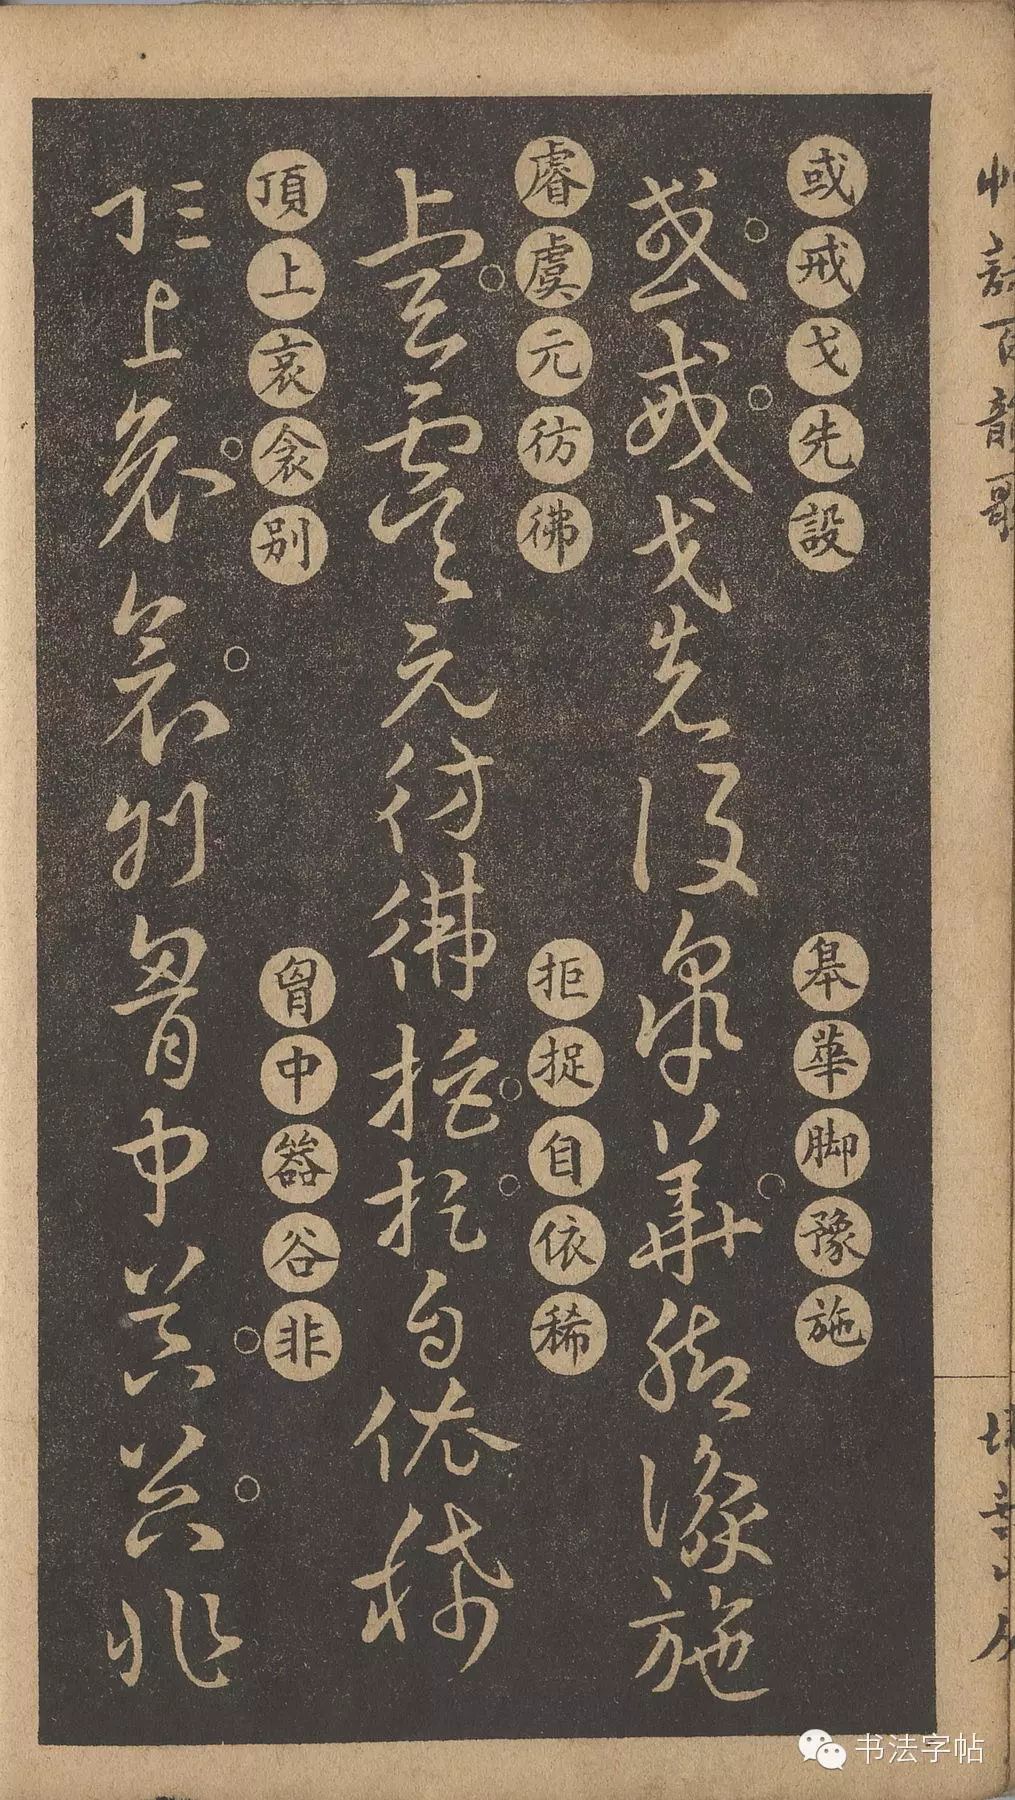 或戒戈先設
皋華脚豫施
睿虞元彷彿
拒捉自依稀
頂上哀衾別
胷中器谷非
草訣百韻歌
书法字帖